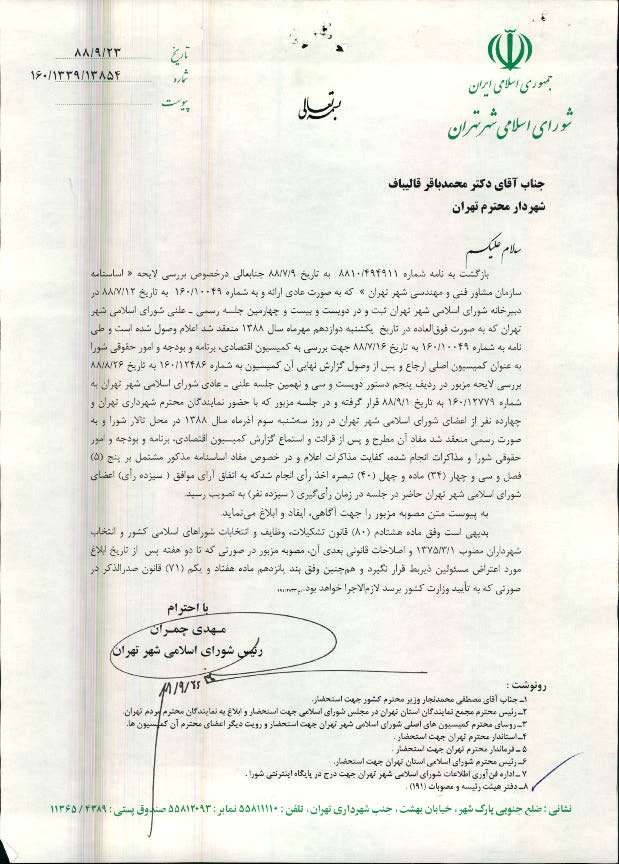 جمهوری اسلامی ایران
شورای اسلامی شهر تهران
بسمه تعالی
تاریخ ۸۸/۹/۲۳
شماره ۱۶۰/۱۳۳۹/۱۳۸۵۴
پیوست
جناب آقای دکتر محمدباقر قالیباف
شهردار محترم تهران
سلام علیکم
بازگشت به نامه شماره ۸۸۱۰/۴۹۴۹۱۱ به تاریخ ۸۸/۷/۹ جنابعالی درخصوص بررسی لایحه « اساسنامه
سازمان مشاور فنی و مهندسی شهر تهران » که به صورت عادی ارائه و به شماره ۱۶۰/۱۰۰۴۹ به تاریخ ۸۸/۷/۱۲ در
دبیرخانه شورای اسلامی شهر تهران ثبت و در دویست و بیست و چهارمین جلسه رسمی ـ علنی شورای اسلامی شهر
تهران که به صورت فوق‌العاده در تاریخ یکشنبه دوازدهم مهرماه سال ۱۳۸۸ منعقد شد اعلام وصول شده است و طی
نامه به شماره ۱۶۰/۱۰۰۴۹ به تاریخ ۸۸/۷/۱۶ جهت بررسی به کمیسیون اقتصادی، برنامه و بودجه و امور حقوقی شورا
به عنوان کمیسیون اصلی ارجاع و پس از وصول گزارش نهایی آن کمیسیون به شماره ۱۶۰/۱۲۴۸۶ به تاریخ ۸۸/۸/۲۶
بررسی لایحه مزبور در ردیف پنجم دستور دویست و سی و نهمین جلسه علنی ـ عادی شورای اسلامی شهر تهران به
شماره ۱۶۰/۱۲۷۷۹ به تاریخ ۸۸/۹/۱ قرار گرفته و در جلسه مزبور که با حضور نمایندگان محترم شهرداری تهران و
چهارده نفر از اعضای شورای اسلامی شهر تهران در روز سه‌شنبه سوم آذرماه سال ۱۳۸۸ در محل تالار شورا و به
صورت رسمی منعقد شد مفاد آن مطرح و پس از قرائت و استماع گزارش کمیسیون اقتصادی، برنامه و بودجه و امور
حقوقی شورا و مذاکرات انجام شده، کفایت مذاکرات اعلام و در خصوص مفاد اساسنامه مذکور مشتمل بر پنج (۵)
فصل و سی و چهار (۳۴) ماده و چهل (۴۰) تبصره اخذ رأی انجام شدکه به اتفاق آرای موافق ( سیزده رأی) اعضای
شورای اسلامی شهر تهران حاضر در جلسه در زمان رأی‌گیری ( سیزده نفر) به تصویب رسید.
به پیوست متن مصوبه مزبور را جهت آگاهی، ایفاد و ابلاغ می‌نماید.
بدیهی است وفق ماده هشتادم (۸۰) قانون تشکیلات، وظایف و انتخابات شوراهای اسلامی کشور و انتخاب
شهرداران مصوب ۱۳۷۵/۳/۱ و اصلاحات قانونی بعدی آن، مصوبه مزبور در صورتی که تا دو هفته پس از تاریخ ابلاغ
مورد اعتراض مسئولین ذیربط قرار نگیرد و هم‌چنین وفق بند پانزدهم ماده هفتاد و یکم (۷۱) قانون صدرالذکر در
صورتی که به تأیید وزارت کشور برسد لازم‌الاجرا خواهد بود.
با احترام
مهدی چمران
رئیس شورای اسلامی شهر تهران
رونوشت :
۱ـ جناب آقای مصطفی محمدنجار وزیر محترم کشور جهت استحضار.
۲ـ رئیس محترم مجمع نمایندگان استان تهران در مجلس شورای اسلامی جهت استحضار و ابلاغ به نمایندگان محترم مردم تهران.
۳ـ روسای محترم کمیسیون های اصلی شورای اسلامی شهر تهران جهت استحضار و رویت دیگر اعضای محترم آن کمیسیون ها.
۴ـ استاندار محترم تهران جهت استحضار.
۵ ـ فرماندار محترم تهران جهت استحضار .
۶ـ رئیس محترم شورای اسلامی استان تهران جهت استحضار.
۷ ـ اداره فن‌آوری اطلاعات شورای اسلامی شهر تهران جهت درج در پایگاه اینترنتی شورا .
۸ـ دفتر هیئت رئیسه و مصوبات (۱۹۱) .
نشانی : ضلع جنوبی پارک شهر، خیابان بهشت، جنب شهرداری تهران، تلفن : ۵۵۸۱۱۱۱۰ نمابر : ۵۵۸۱۲۰۹۳ صندوق پستی : ۴۳۸۹ / ۱۱۳۶۵